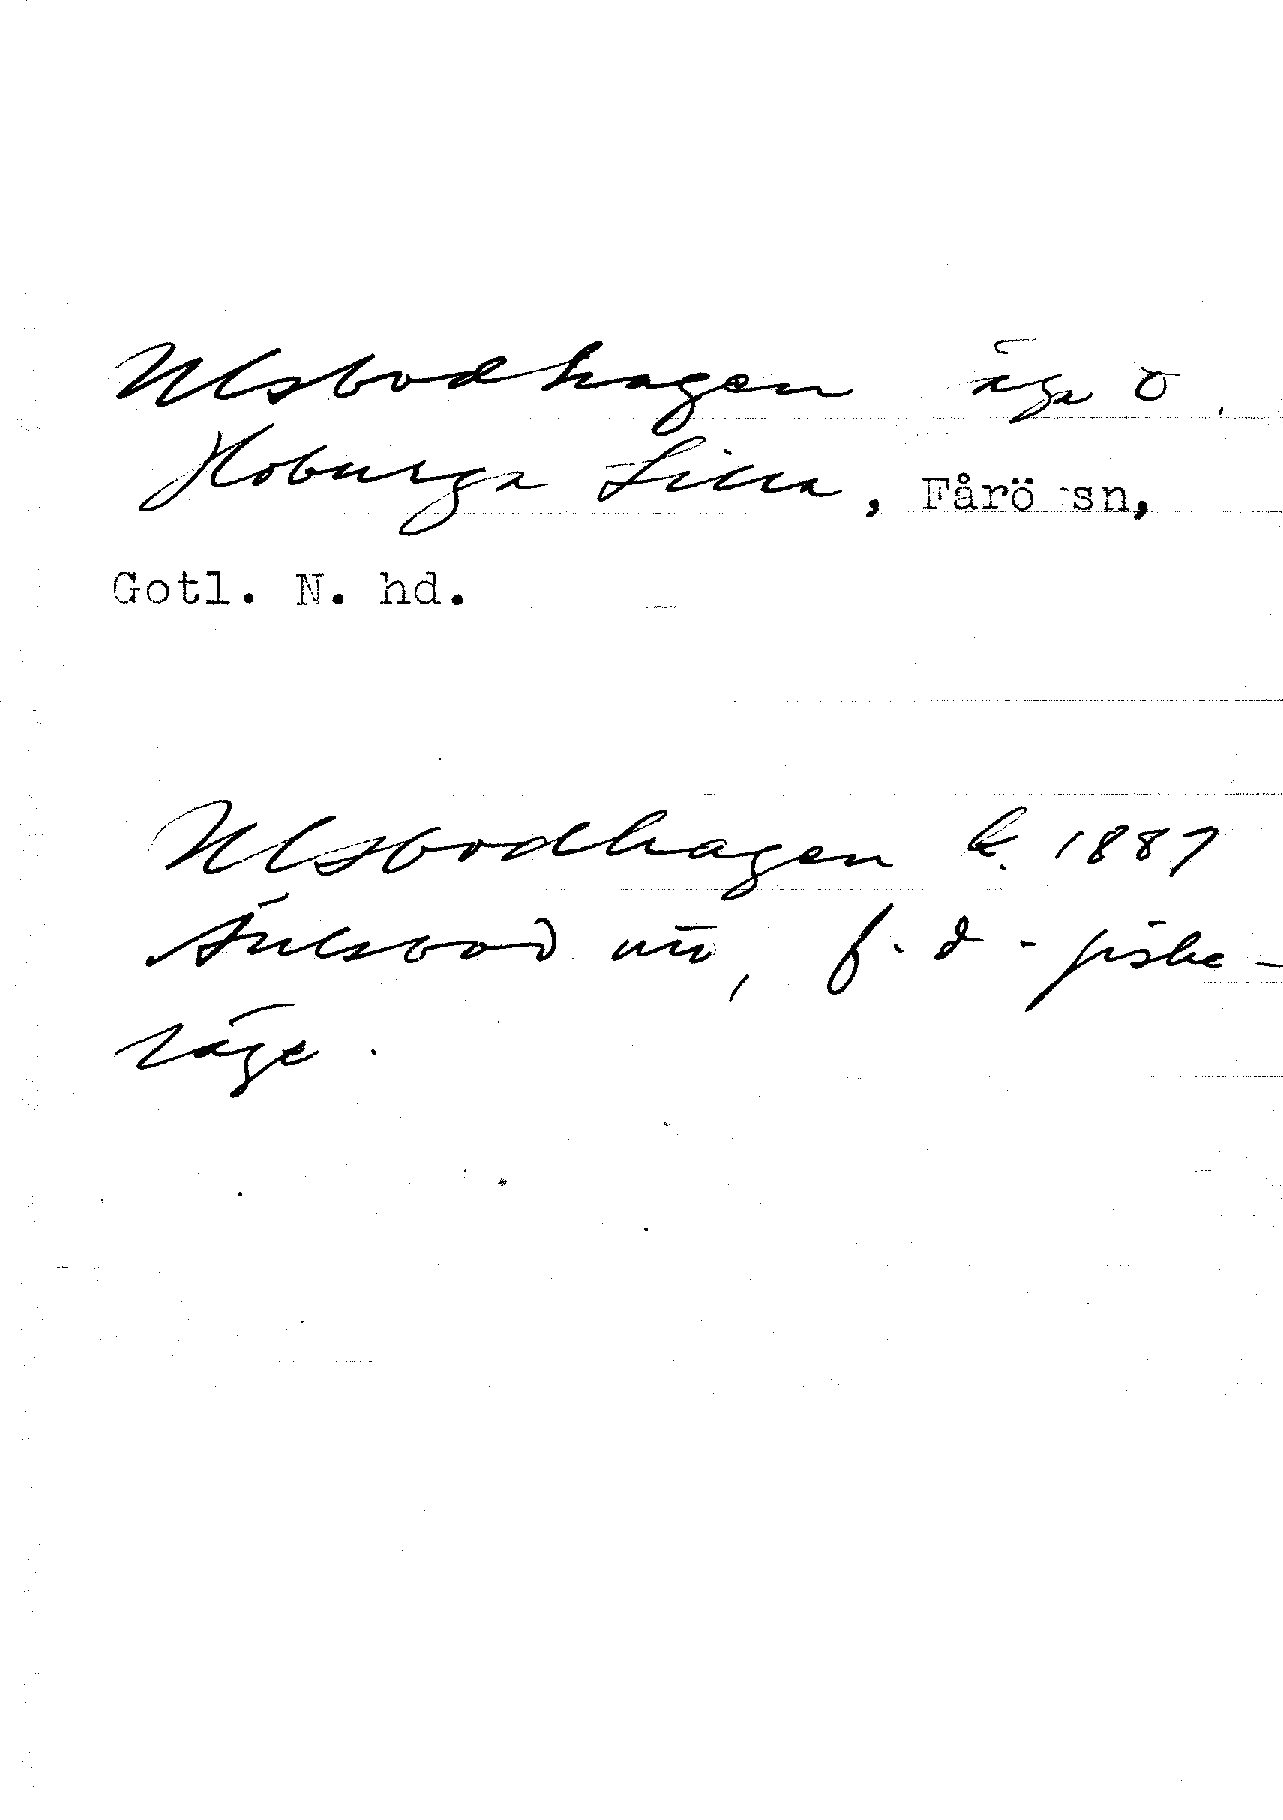 Ulsbodhagen äga Ö
Hoburga Lilla, Fårö sn,
Gotl. N. hd.
Ulsbodhagen k. 1887
Äulsbod nu, f. d. fiske-
läge.